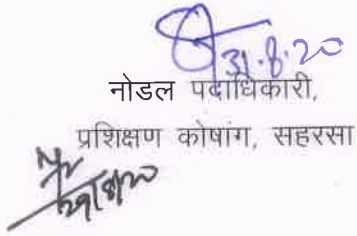 31.8.20
नोडल पदाधिकारी,
प्रशिक्षण कोषांग, सहरसा